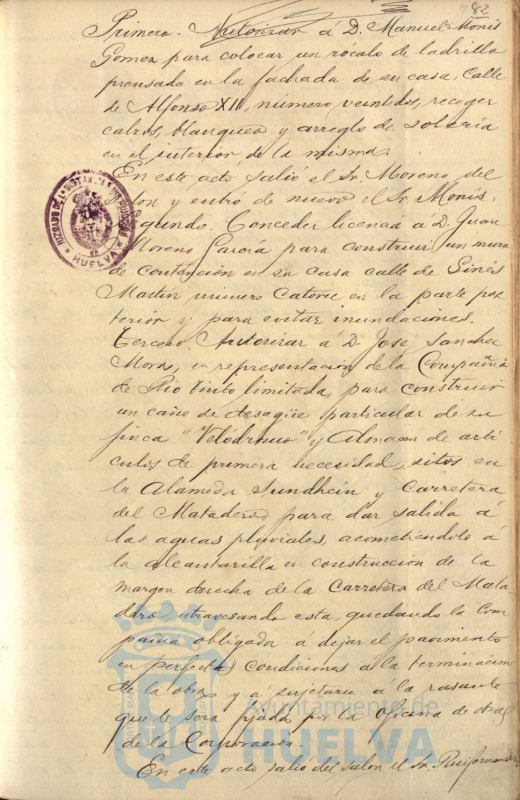 782
Primero. Autorizar á D. Manuel Monís
Gomez para colocar un zócalo de ladrillo
prensado en la fachada de su casa, Calle
de Alfonso XII, número veintidos, recoger
cabros, blanqueo y arreglo de soleria
en el interior de la misma.
En este acto salió el Sr. Moreno del
salon y entró de nuevo el Sr. Monís.
Segundo. Conceder licencia á D. Juan
Moreno García para construir un muro
de contención en su casa calle de Ginés
Martín número catorce en la parte pos
terior y para evitar inundaciones.
Tercero. Autorizar á D. José Sanchez
Mora, en representación de la Compañia
de Rio Tinto limitada, para construir
un caño de desagüe particular de su
finca "Velódromo" y Almacen de artí
culos de primera necesidad, sitos en
la Alameda Sundhein y Carretera
del Matadero para dar salida á
las aguas pluviales, acometiendolo á
la alcantarilla en construccion de la
margen derecha de la Carretera del Mata
dero, atravesando esta, quedando la Com
pañia obligada á dejar el pavimento
en perfectas condiciones a la terminacion
de la obra y á sujetarse á la rasante
que le sera fijada por la oficina de obras
de la Corporación.
En este acto salió del salon el Sr.
HUELVA
Ayuntamiento de
HUELVA